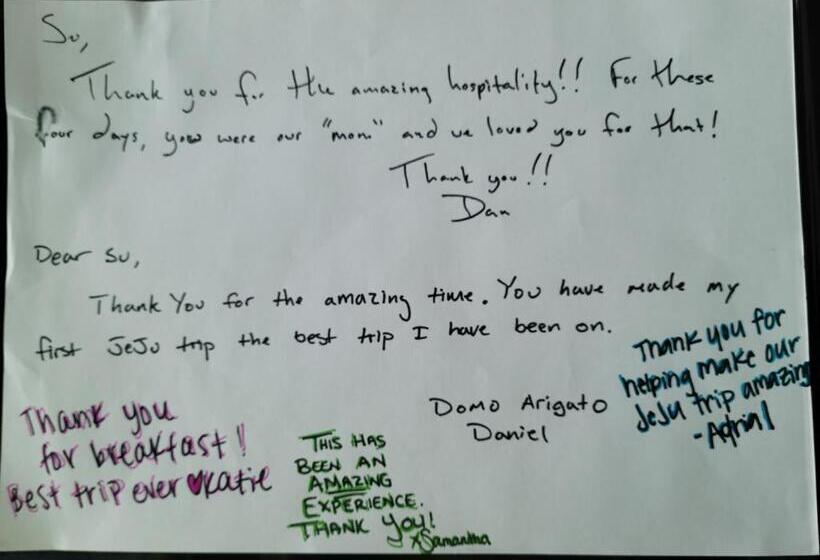 Su,
Thank you for the amazing hospitality!! For these
four days, you were our "mom" and we loved you for that!
Thank you!!
Dan
Dear Su,
Thank You for the amazing time. You have made my
first JeJu trip the best trip I have been on.
Domo Arigato
Daniel
Thank you for
helping make our
JeJu trip amazing
-Adrial
Thank you
for breakfast!
Best trip ever ♥Katie
THIS HAS
BEEN AN
AMAZING
EXPERIENCE.
THANK YOU!
xSamantha